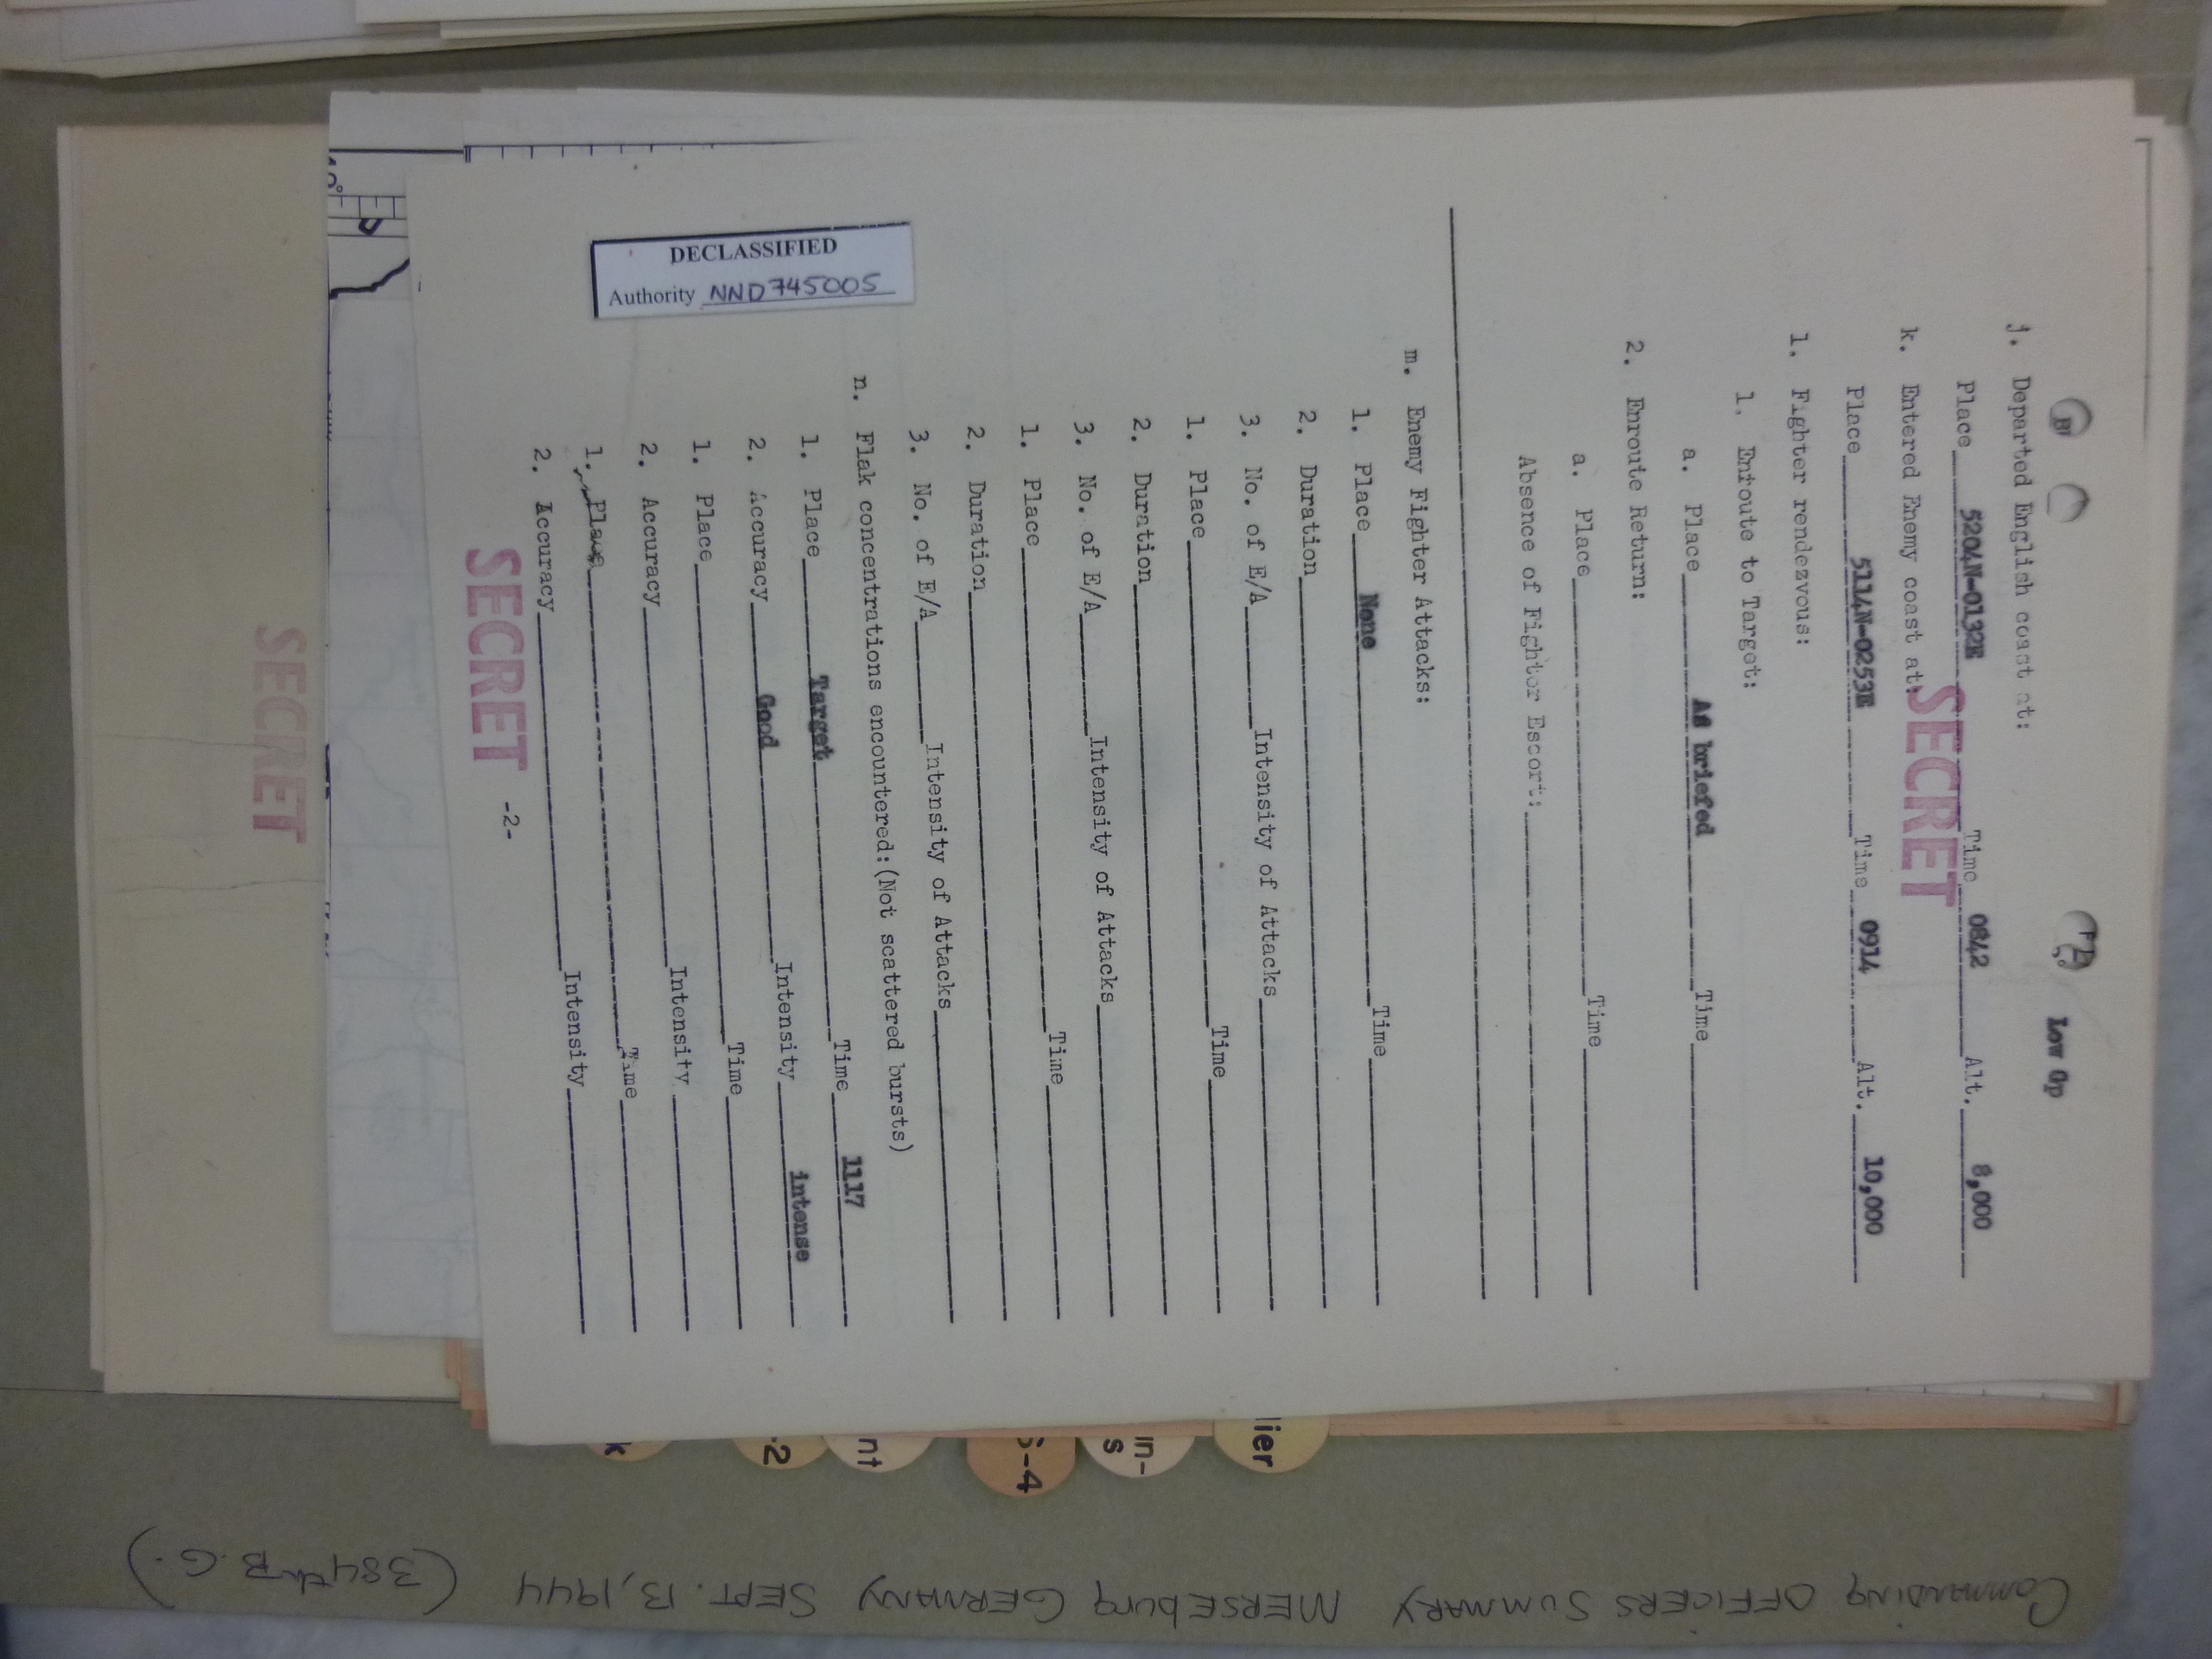 Low Gp
j. Departed English coast at:
Place 5204N-0132E Time 0842 Alt. 8,000
SECRET
k. Entered Enemy coast at:
Place 5114N-0253E Time 0914 Alt. 10,000
l. Fighter rendezvous:
1. Enroute to Target:
a. Place As briefed Time
2. Enroute Return:
a. Place Time
Absence of Fighter Escort:
m. Enemy Fighter Attacks:
1. Place None Time
2. Duration
3. No. of E/A Intensity of Attacks
1. Place Time
2. Duration
3. No. of E/A Intensity of Attacks
1. Place Time
2. Duration
3. No. of E/A Intensity of Attacks
n. Flak concentrations encountered:(Not scattered bursts)
1. Place Target Time 1117
2. Accuracy Good Intensity intense
1. Place Time
2. Accuracy Intensity
1. Place Time
2. Accuracy Intensity
SECRET
-2-
DECLASSIFIED
Authority NND745005
SECRET
lier
in-
s
S-4
nt
-2
k
COMMANDING OFFICERS SUMMARY MERSEBURG GERMANY SEPT. 13, 1944 (384th B.G.)